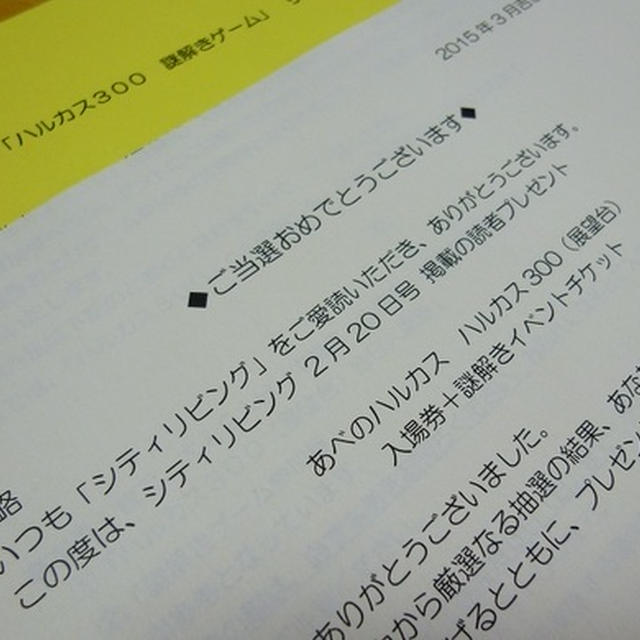 「ハルカス300 謎解きゲーム」
2015年3月吉
◆ご当選おめでとうございます◆
いつも「シティリビング」をご愛読いただき、ありがとうございます。
この度は、シティリビング2月20日号 掲載の読者プレゼント
あべのハルカス ハルカス300(展望台)
入場券+謎解きイベントチケット
ありがとうございました。
から厳選なる抽選の結果、あな
げるとともに、プレゼン